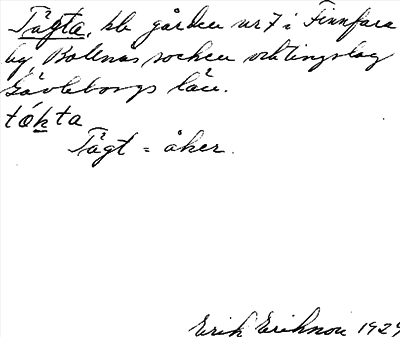 Tågta, kb gården nr 7 i Finnfara
by, Bollnäs socken och tingslag
Gävleborgs län.
tókta
Tågt = åker.
Erik Erikson 1929